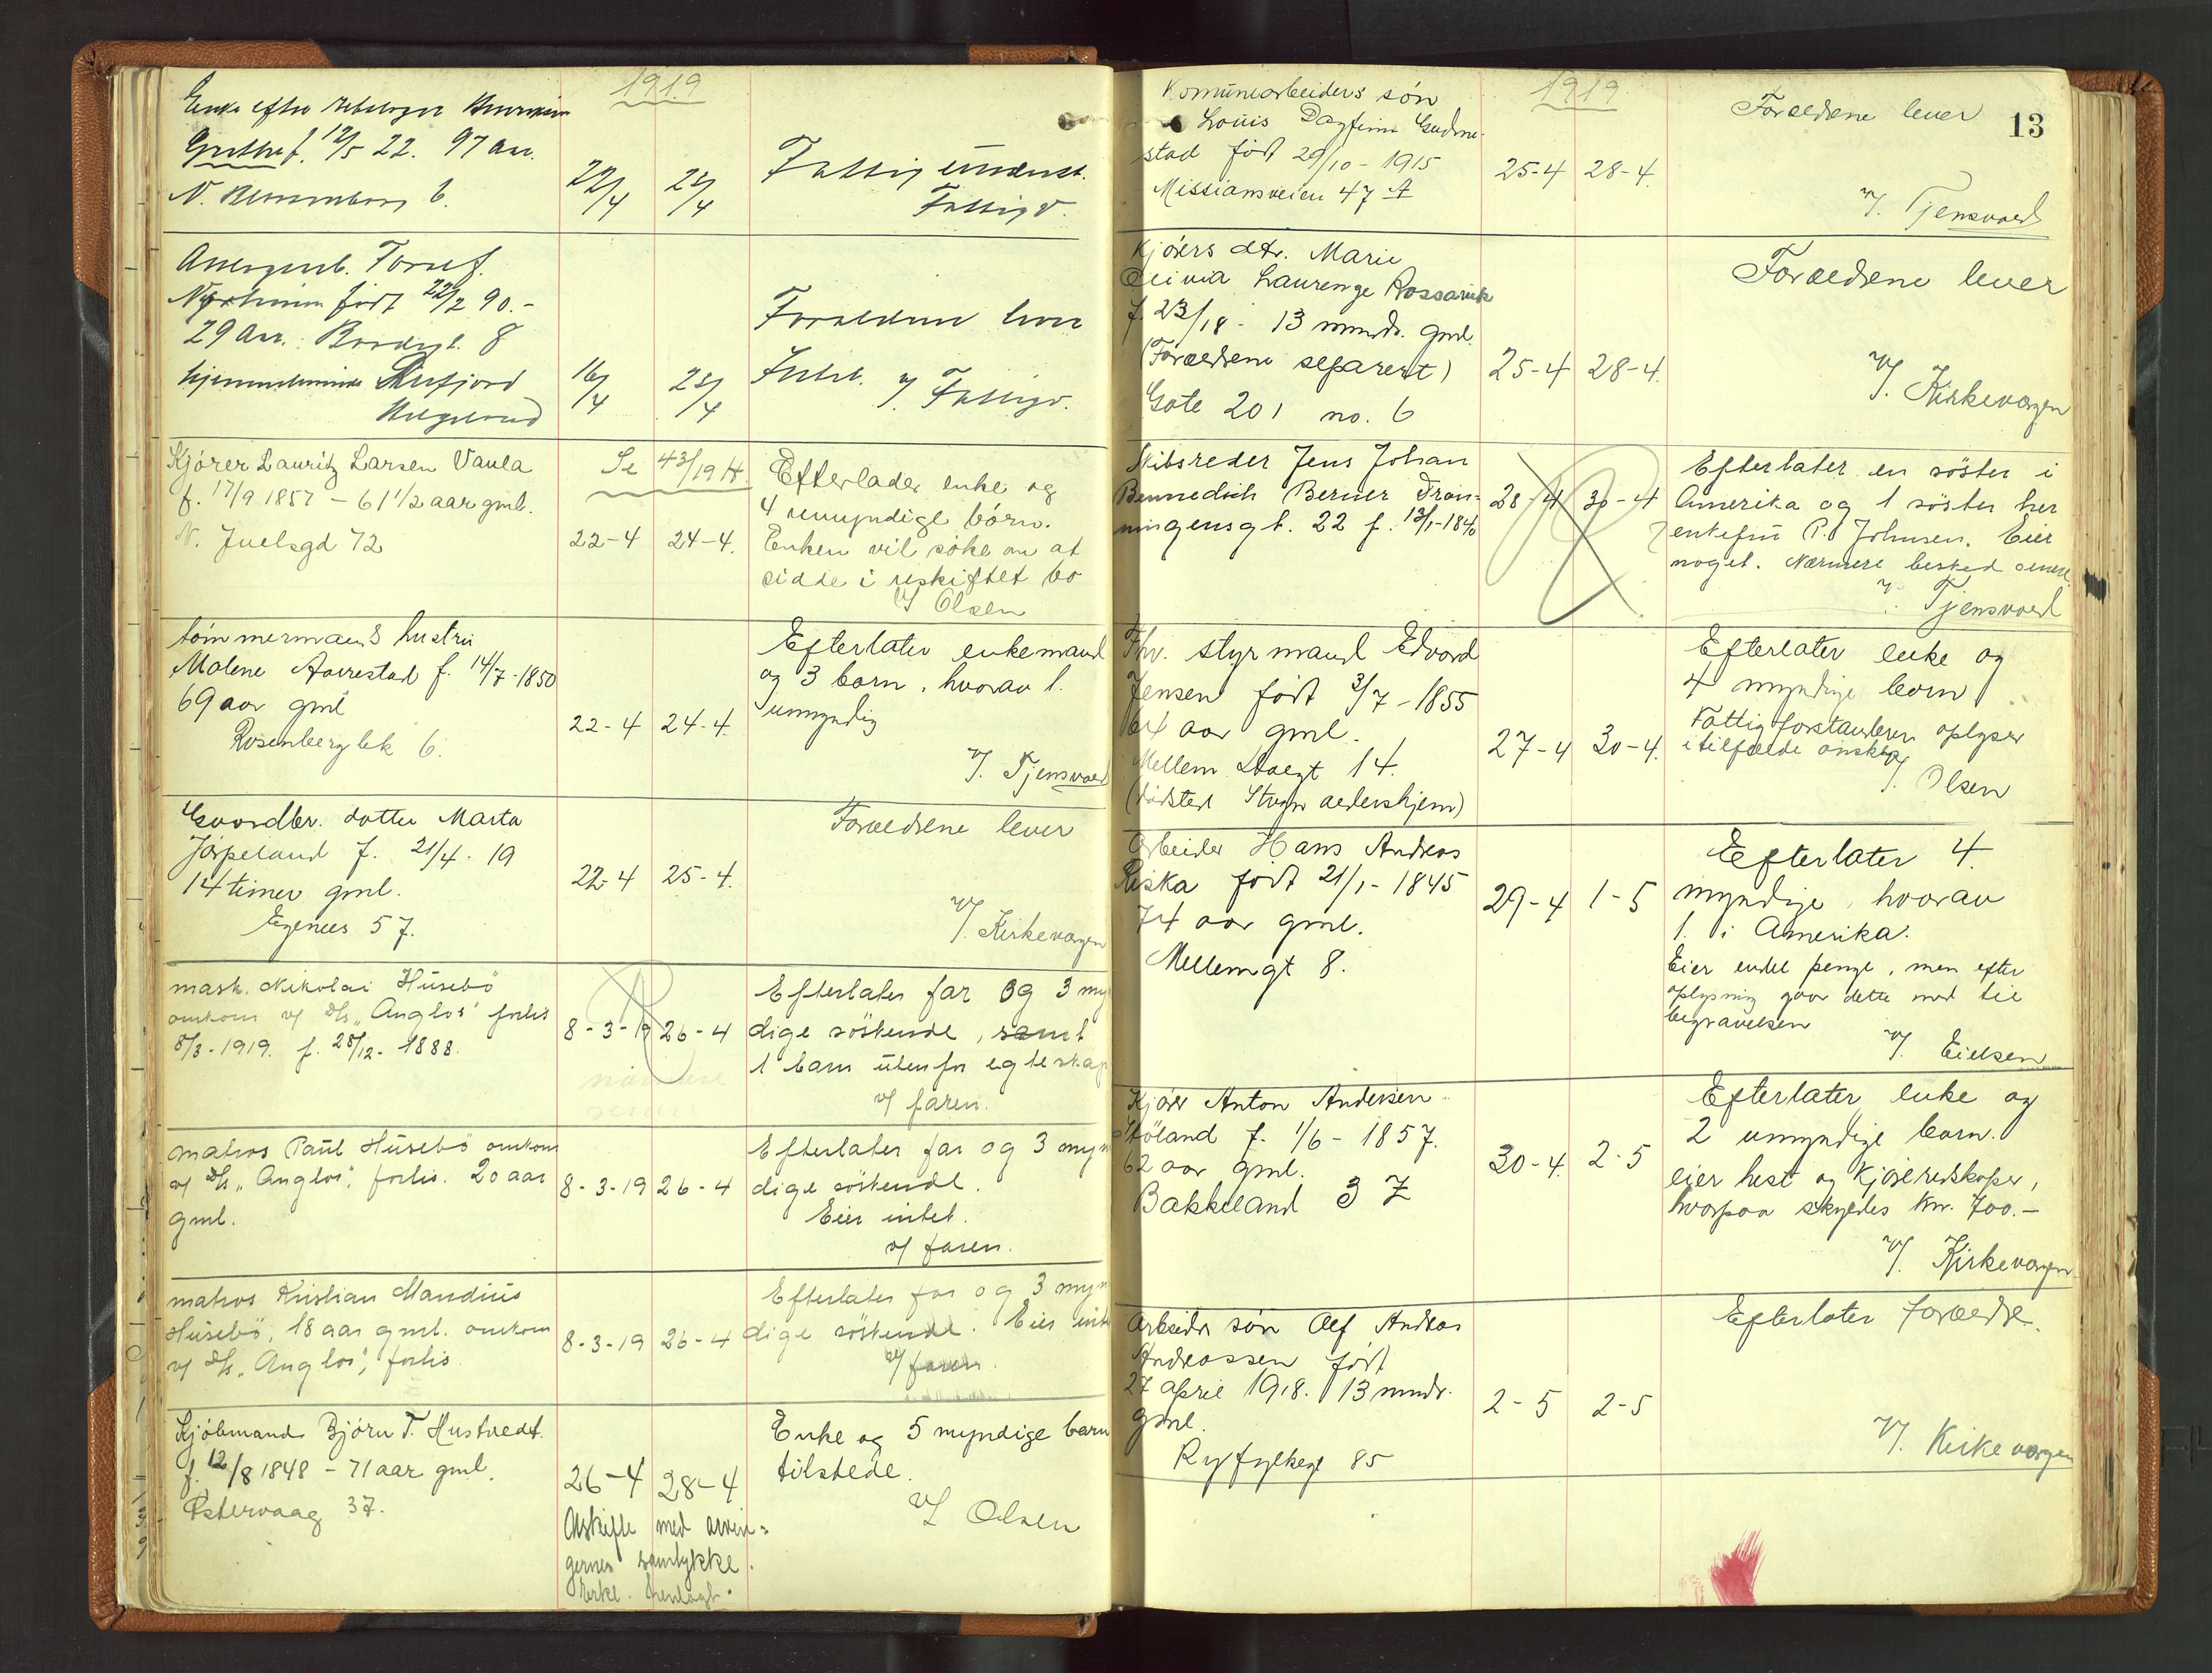 1919
Enke efter
f. 12/5 22. 97 Aar.
N. 6.
22/4
25/4
Fattig underst.
Fattigv.
født 22/2 90.-
29 Aar. 8
16/4
25/4
Forældrene lever
v/ Fattigv.
Kjörer Lauritz Larsen Vaula
f. 17/9 1857 - 61 1/2 aar gml.
N. Juelsgd 72
Se 43/19 H.
22-4 24-4.
Efterlader enke og
4 umyndige börn.
Enken vil söke om at
sidde i uskiftet bo
V/ Olsen
tömmermands hustru
Malene Aarrestad f. 14/7-1850
69 aar gml
Rosenbergbk 6.
22-4 24-4.
Efterlater enkemand
og 3 barn, hvorav 1.
umyndig
V/. Tjensvoed
Gaardbr. datter Marta
Jörpeland f. 21/4-19
14 timer gml.
Egenes 57.
22-4 25-4.
Forældrene lever
V/. Kirkevergen
mask. Nikolai Húsebö
omkom v/ D/s „Anglos" forlis
8/3-1919. f. 28/12-1888.
8-3-19 26-4
Efterlater far og 3 myn
dige söskende, samt
1 barn utenfor egteskap
v/ faren.
matros Paul Húsebö omkom
v/ D/s „Anglos", forlis. 20 aar
gml.
8-3-19 26-4
Efterlater far og 3 myn
dige söskende.
Eier intet.
v/ faren.
matros Kristian Mandius
Húsebö, 18 aar gml. omkom
v/ D/s „Anglos", forlis.
8-3-19 26-4
Efterlater far og 3 myn
dige söskende. Eier intet
v/ faren.
Kjöbmand Björn T. Hustvedt.
f. 12/8 1848 - 71 aar gml.
Østervaag 37.
26-4 28-4
Utskifte med arvin-
gernes samtykke.
Erkl. henlagt.
Enke og 5 myndige barn
tilstede.
V/ Olsen
1919
13
Komunearbeiders sön
Louis Dagfinn Gudme-
stad född 29/10-1915
Missionsveien 47 A
25-4 28-4.
Forældrene lever
V/. Tjensvoed
Kjörers dtr. Marie
Laurenze Rossavik
f. 23/18 - 13 mndr. gml.
(Forældrene separert)
Gate 201 no. 6
25-4 28-4.
Forældrene lever
V/. Kirkevergen
Skibsreder Jens Johan
Bennedich Berner Dron-
ningensgt. 22 f. 13/1-1840
28-4 30-4
Efterlater en söster i
Amerika og 1 söster her
enkefru P. Johnsen. Eier
noget. Nærmere besked senere
V/. Tjensvoed
Fhv. styrmand Edvard
Jensen födt 3/7-1855
64 aar gml.
Mellem Straegt 14.
(dödsted Stvgr aldershjem)
27-4 30-4.
Efterlater enke og
4 myndige barn
Fattigforstanderen oplyser
i tilfælde önskes
V/. Olsen
Arbeider Hans Andreas
Riska födt 21/1-1845
74 aar gml.
Mellemgt 8.
29-4 1-5
Efterlater 4
myndige, hvorav
1. i Amerika.
Eier endel penge, men efter
oplysning gaar dette med til
begravelsen
V/. Eielsen
Kjörer Anton Andersen
Stöland f. 1/6-1857.
62 aar gml.
Bakkeland 37
30-4. 2-5
Efterlater enke og
2 umyndige barn.
eier hest og kjöreredskaper,
hvorpaa skyldes kr. 700.-
V/. Kirkevergen
Arbeider sön Alf Andreas
Andreassen födt
27 april 1918. 13 mndr.
gml.
Ryfylkegt 85
2-5 2-5
Efterlater forældre.
V/. Kirkevergen